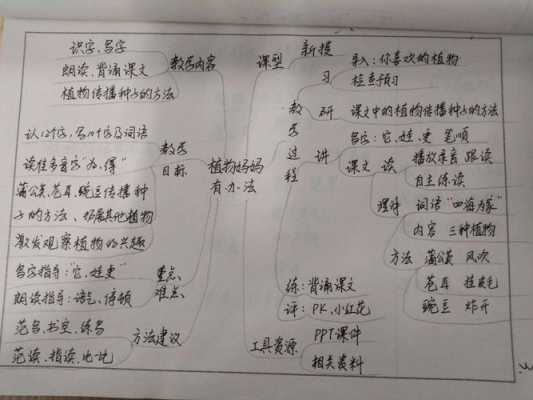 识字、写字
朗读、背诵课文
植物传播种子的方法
教学内容
认12个字,写10个字及词语
读准多音字“为、得”
蒲公英、苍耳、豌豆传播种
子的方法、拓展其他植物
激发观察植物的兴趣
教学
目标
写字指导:“它、娃、更”
朗读指导:语气、停顿
重点、
难点、
范写、书空、练写
范读、指读、比比
方法建议
植物妈妈
有办法
课型
新授
教学过程
习
导入:你喜欢的植物
检查预习
研
课文中的植物传播种子的方法
讲
写字:它、娃、更 笔顺
课文
读
播放录音 跟读
自主练读
理解
词语“四海为家”
内容 三种植物
方法
蒲公英 风吹
苍耳 挂皮毛
豌豆 炸开
练:背诵课文
评:PK、小红花
工具资源
PPT课件
相关资料
3.